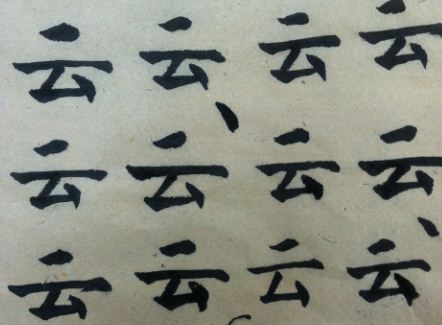 云云云云
云云云云
云云云云